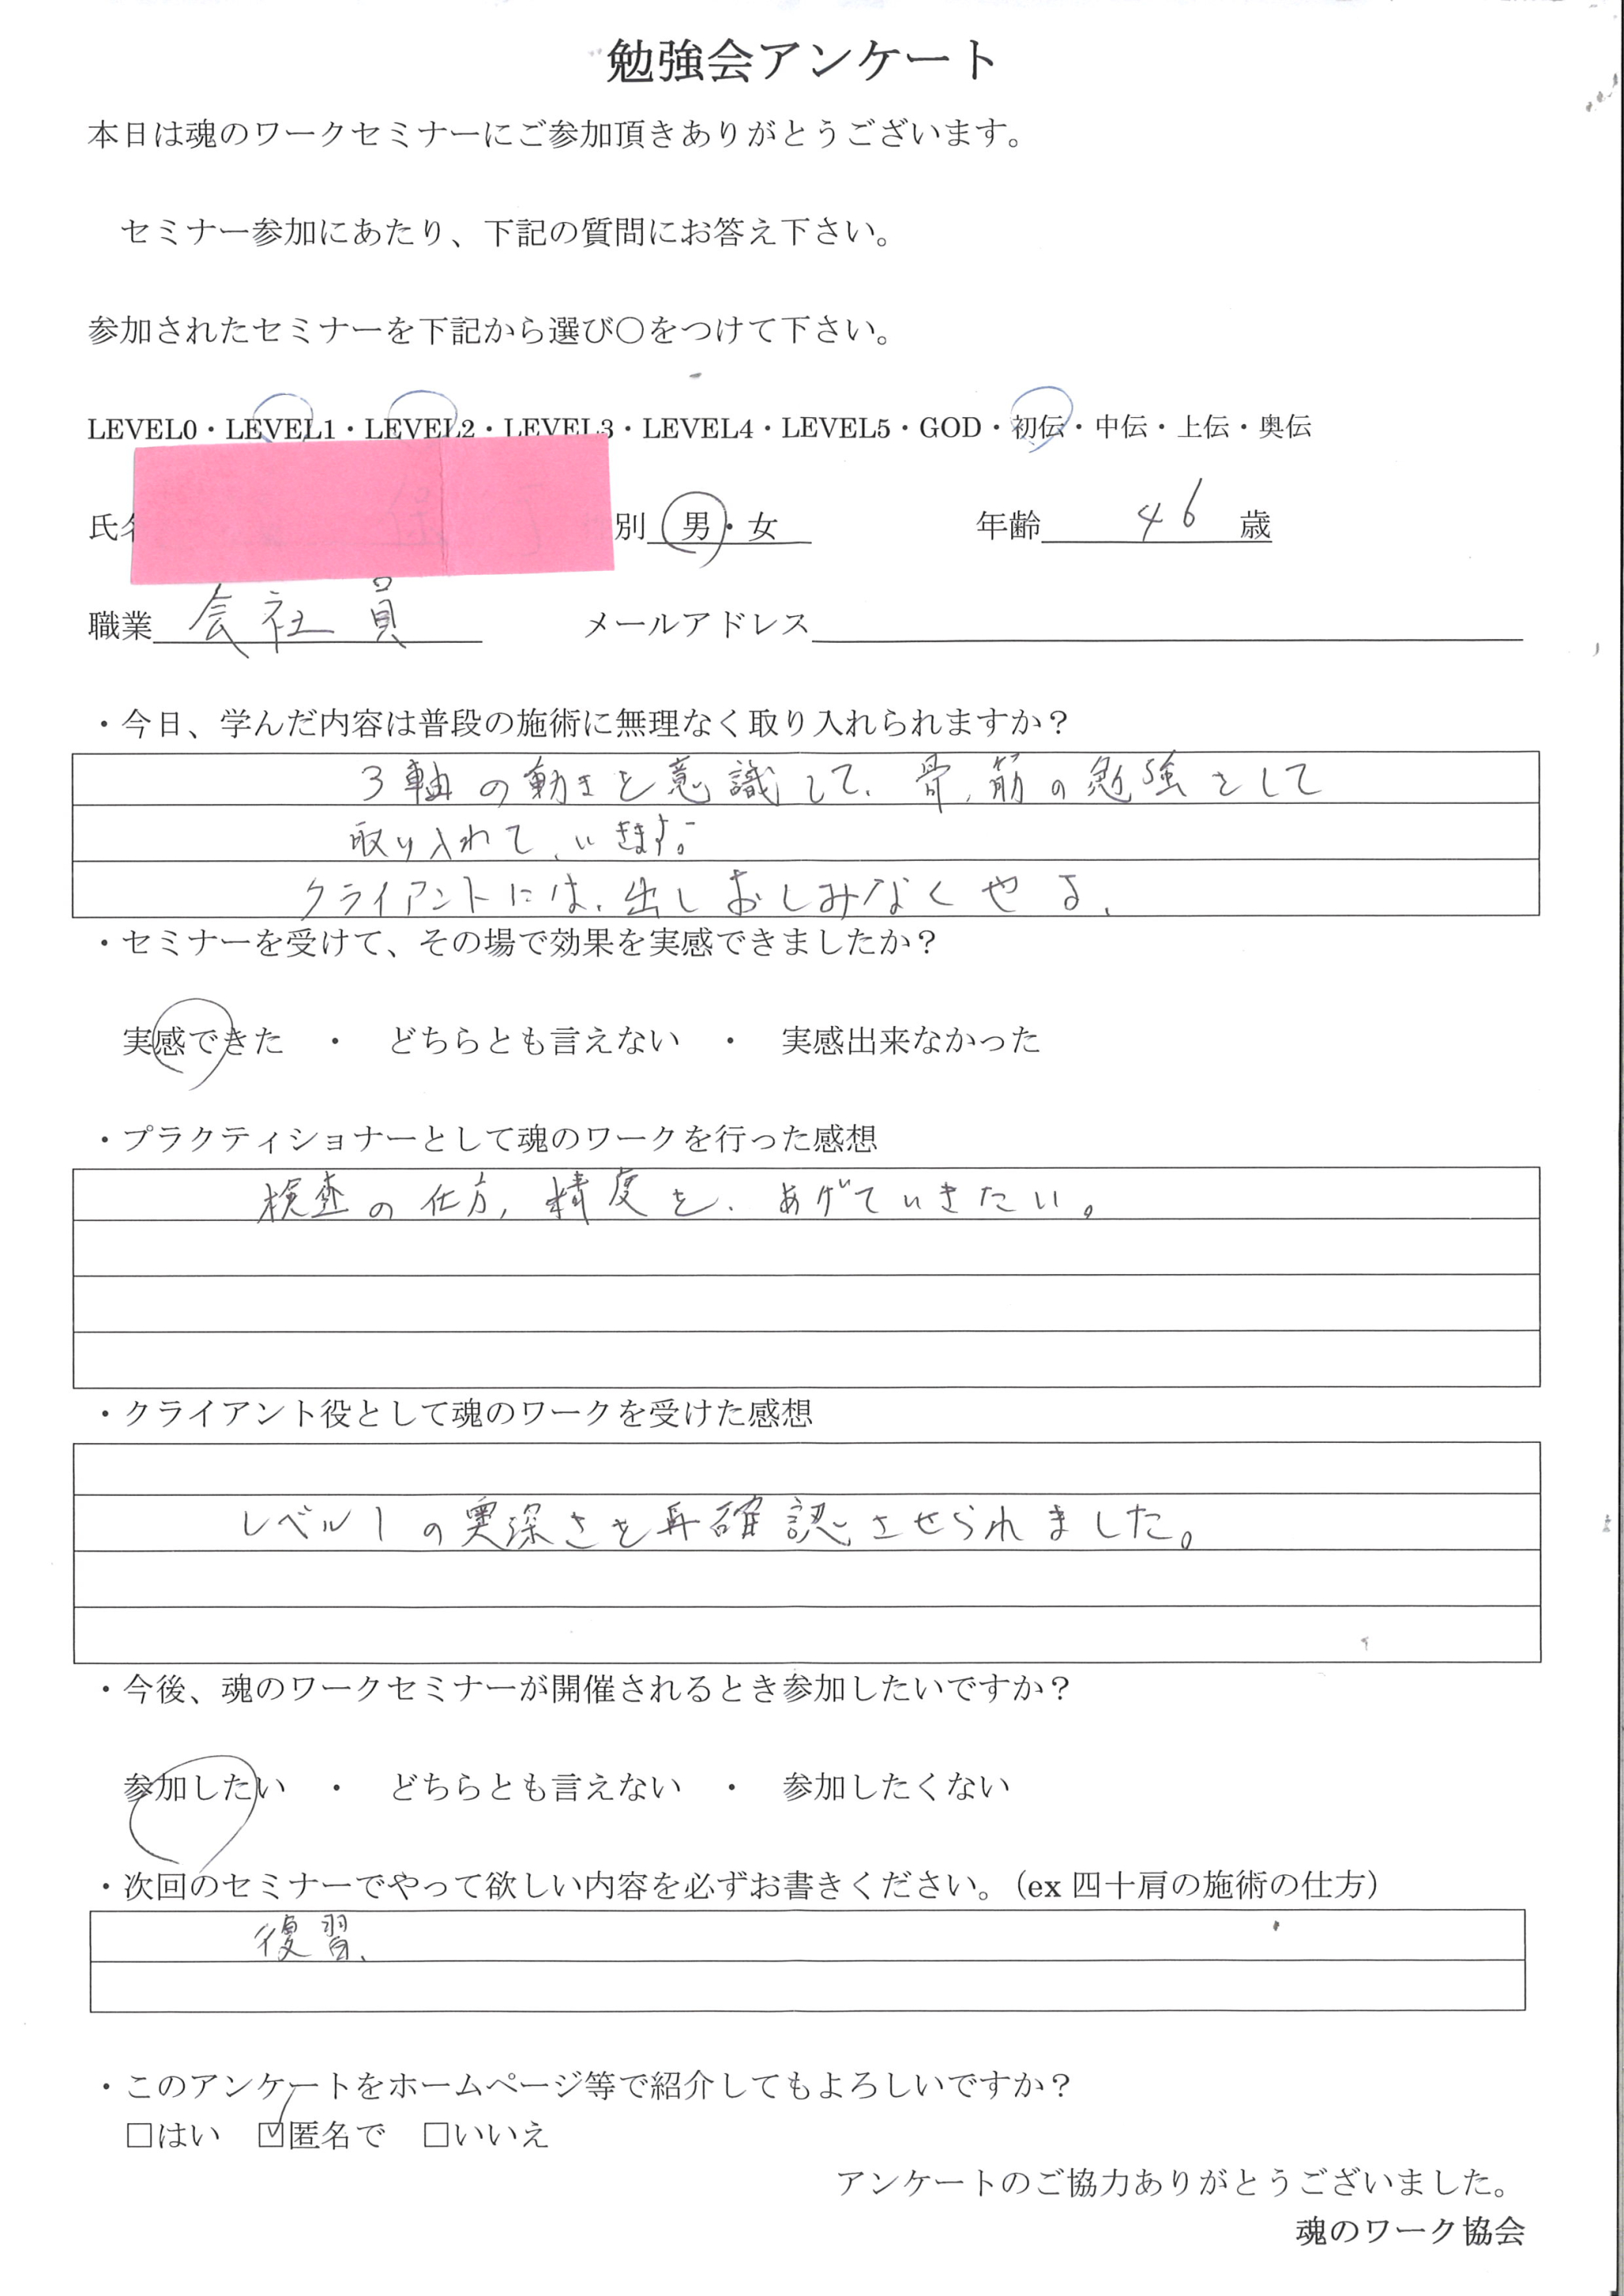 勉強会アンケート
本日は魂のワークセミナーにご参加頂きありがとうございます。
セミナー参加にあたり、下記の質問にお答え下さい。
参加されたセミナーを下記から選び〇をつけて下さい。
LEVEL0・LEVEL1・LEVEL2・LEVEL3・LEVEL4・LEVEL5・GOD・初伝・中伝・上伝・奥伝
氏名 別 男・女 年齢 46 歳
職業 会社員 メールアドレス
・今日、学んだ内容は普段の施術に無理なく取り入れられますか？
3軸の動きを意識して、骨、筋の勉強をして
取り入れて、いきます。
クライアントには、出しおしみなくやる、
・セミナーを受けて、その場で効果を実感できましたか？
実感できた ・ どちらとも言えない ・ 実感出来なかった
・プラクティショナーとして魂のワークを行った感想
検査の仕方、精度を、あげていきたい。
・クライアント役として魂のワークを受けた感想
レベル1の奥深さを再確認させられました。
・今後、魂のワークセミナーが開催されるとき参加したいですか？
参加したい ・ どちらとも言えない ・ 参加したくない
・次回のセミナーでやって欲しい内容を必ずお書きください。（ex 四十肩の施術の仕方）
復習、
・このアンケートをホームページ等で紹介してもよろしいですか？
□はい ☑匿名で □いいえ
アンケートのご協力ありがとうございました。
魂のワーク協会